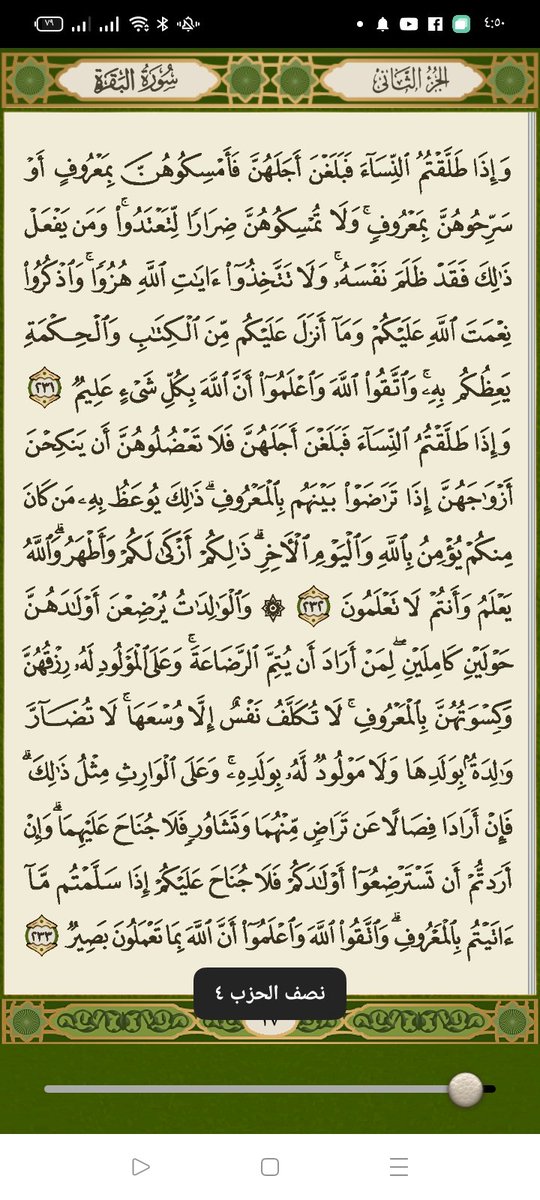 ٧٩
٤:٥٠
الجزء الثاني
سورة البقرة
وَإِذَا طَلَّقْتُمُ ٱلنِّسَآءَ فَبَلَغْنَ أَجَلَهُنَّ فَأَمْسِكُوهُنَّ بِمَعْرُوفٍ أَوْ
سَرِّحُوهُنَّ بِمَعْرُوفٍ ۚ وَلَا تُمْسِكُوهُنَّ ضِرَارًا لِّتَعْتَدُوا۟ ۚ وَمَن يَفْعَلْ
ذَٰلِكَ فَقَدْ ظَلَمَ نَفْسَهُۥ ۚ وَلَا تَتَّخِذُوٓا۟ ءَايَٰتِ ٱللَّهِ هُزُوًا ۚ وَٱذْكُرُوا۟
نِعْمَتَ ٱللَّهِ عَلَيْكُمْ وَمَآ أَنزَلَ عَلَيْكُم مِّنَ ٱلْكِتَٰبِ وَٱلْحِكْمَةِ
يَعِظُكُم بِهِۦ ۚ وَٱتَّقُوا۟ ٱللَّهَ وَٱعْلَمُوٓا۟ أَنَّ ٱللَّهَ بِكُلِّ شَىْءٍ عَلِيمٌ ٢٣١
وَإِذَا طَلَّقْتُمُ ٱلنِّسَآءَ فَبَلَغْنَ أَجَلَهُنَّ فَلَا تَعْضُلُوهُنَّ أَن يَنكِحْنَ
أَزْوَٰجَهُنَّ إِذَا تَرَٰضَوْا۟ بَيْنَهُم بِٱلْمَعْرُوفِ ۗ ذَٰلِكَ يُوعَظُ بِهِۦ مَن كَانَ
مِنكُمْ يُؤْمِنُ بِٱللَّهِ وَٱلْيَوْمِ ٱلْـَٔاخِرِ ۗ ذَٰلِكُمْ أَزْكَىٰ لَكُمْ وَأَطْهَرُ ۗ وَٱللَّهُ
يَعْلَمُ وَأَنتُمْ لَا تَعْلَمُونَ ٢٣٢ ۞ وَٱلْوَٰلِدَٰتُ يُرْضِعْنَ أَوْلَٰدَهُنَّ
حَوْلَيْنِ كَامِلَيْنِ ۖ لِمَنْ أَرَادَ أَن يُتِمَّ ٱلرَّضَاعَةَ ۚ وَعَلَى ٱلْمَوْلُودِ لَهُۥ رِزْقُهُنَّ
وَكِسْوَتُهُنَّ بِٱلْمَعْرُوفِ ۚ لَا تُكَلَّفُ نَفْسٌ إِلَّا وُسْعَهَا ۚ لَا تُضَآرَّ
وَٰلِدَةٌۢ بِوَلَدِهَا وَلَا مَوْلُودٌ لَّهُۥ بِوَلَدِهِۦ ۚ وَعَلَى ٱلْوَارِثِ مِثْلُ ذَٰلِكَ ۗ
فَإِنْ أَرَادَا فِصَالًا عَن تَرَاضٍ مِّنْهُمَا وَتَشَاوُرٍ فَلَا جُنَاحَ عَلَيْهِمَا ۗ وَإِنْ
أَرَدتُّمْ أَن تَسْتَرْضِعُوٓا۟ أَوْلَٰدَكُمْ فَلَا جُنَاحَ عَلَيْكُمْ إِذَا سَلَّمْتُم مَّآ
ءَاتَيْتُم بِٱلْمَعْرُوفِ ۗ وَٱتَّقُوا۟ ٱللَّهَ وَٱعْلَمُوٓا۟ أَنَّ ٱللَّهَ بِمَا تَعْمَلُونَ بَصِيرٌ ٢٣٣
نصف الحزب ٤